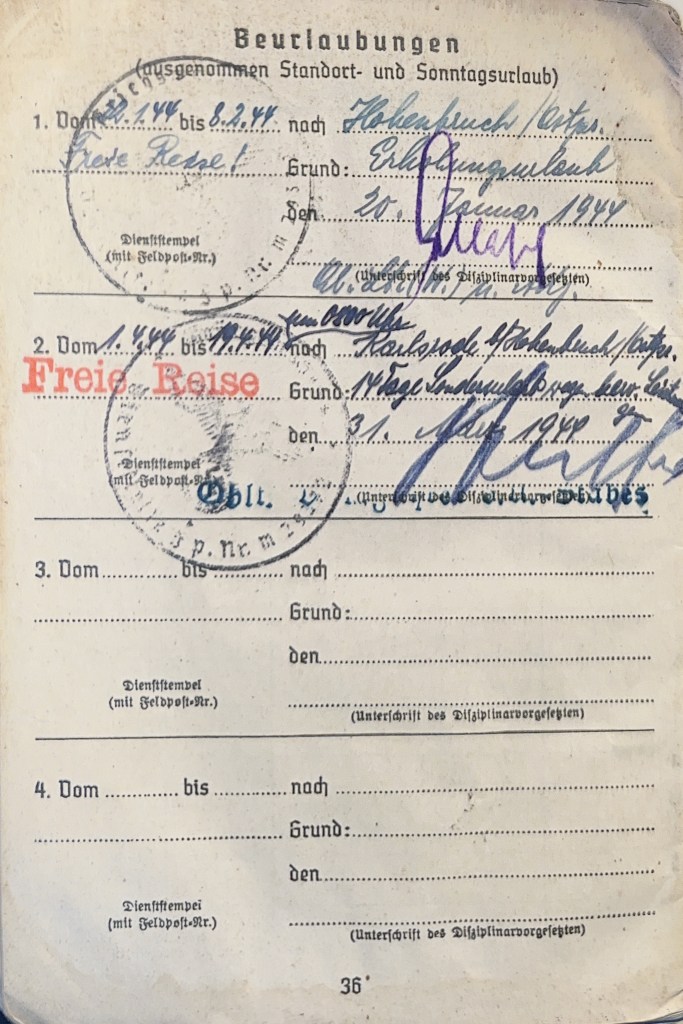 Beurlaubungen
(ausgenommen Standort- und Sonntagsurlaub)
1. Vom 22.1.44 bis 8.2.44 nach Hohenbruch/Ostpr.
Freie Reise! Grund: Erholungsurlaub
den 20. Januar 1944
Dienststempel
(mit Feldpost-Nr.)
(Unterschrift des Disziplinarvorgesetzten)
um 0800 Uhr
2. Vom 1.4.44 bis 19.4.44 nach Karlsrode b/Hohenbruch/Ostpr.
Freie Reise Grund: 14 Tage Sonderurlaub wegen bes.
den 31. März 1944
Dienststempel
(mit Feldpost-Nr.)
Oblt. (Unterschrift des Disziplinarvorgesetzten)
3. Vom bis nach
Grund:
den
Dienststempel
(mit Feldpost-Nr.)
(Unterschrift des Disziplinarvorgesetzten)
4. Vom bis nach
Grund:
den
Dienststempel
(mit Feldpost-Nr.)
(Unterschrift des Disziplinarvorgesetzten)
36